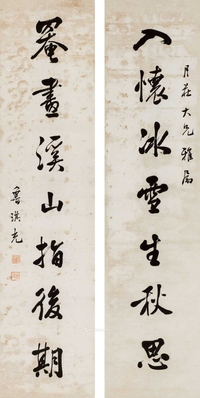 月莊大兄雅屬
入懷冰雪生秋思
罨畫溪山指後期
魯琪光